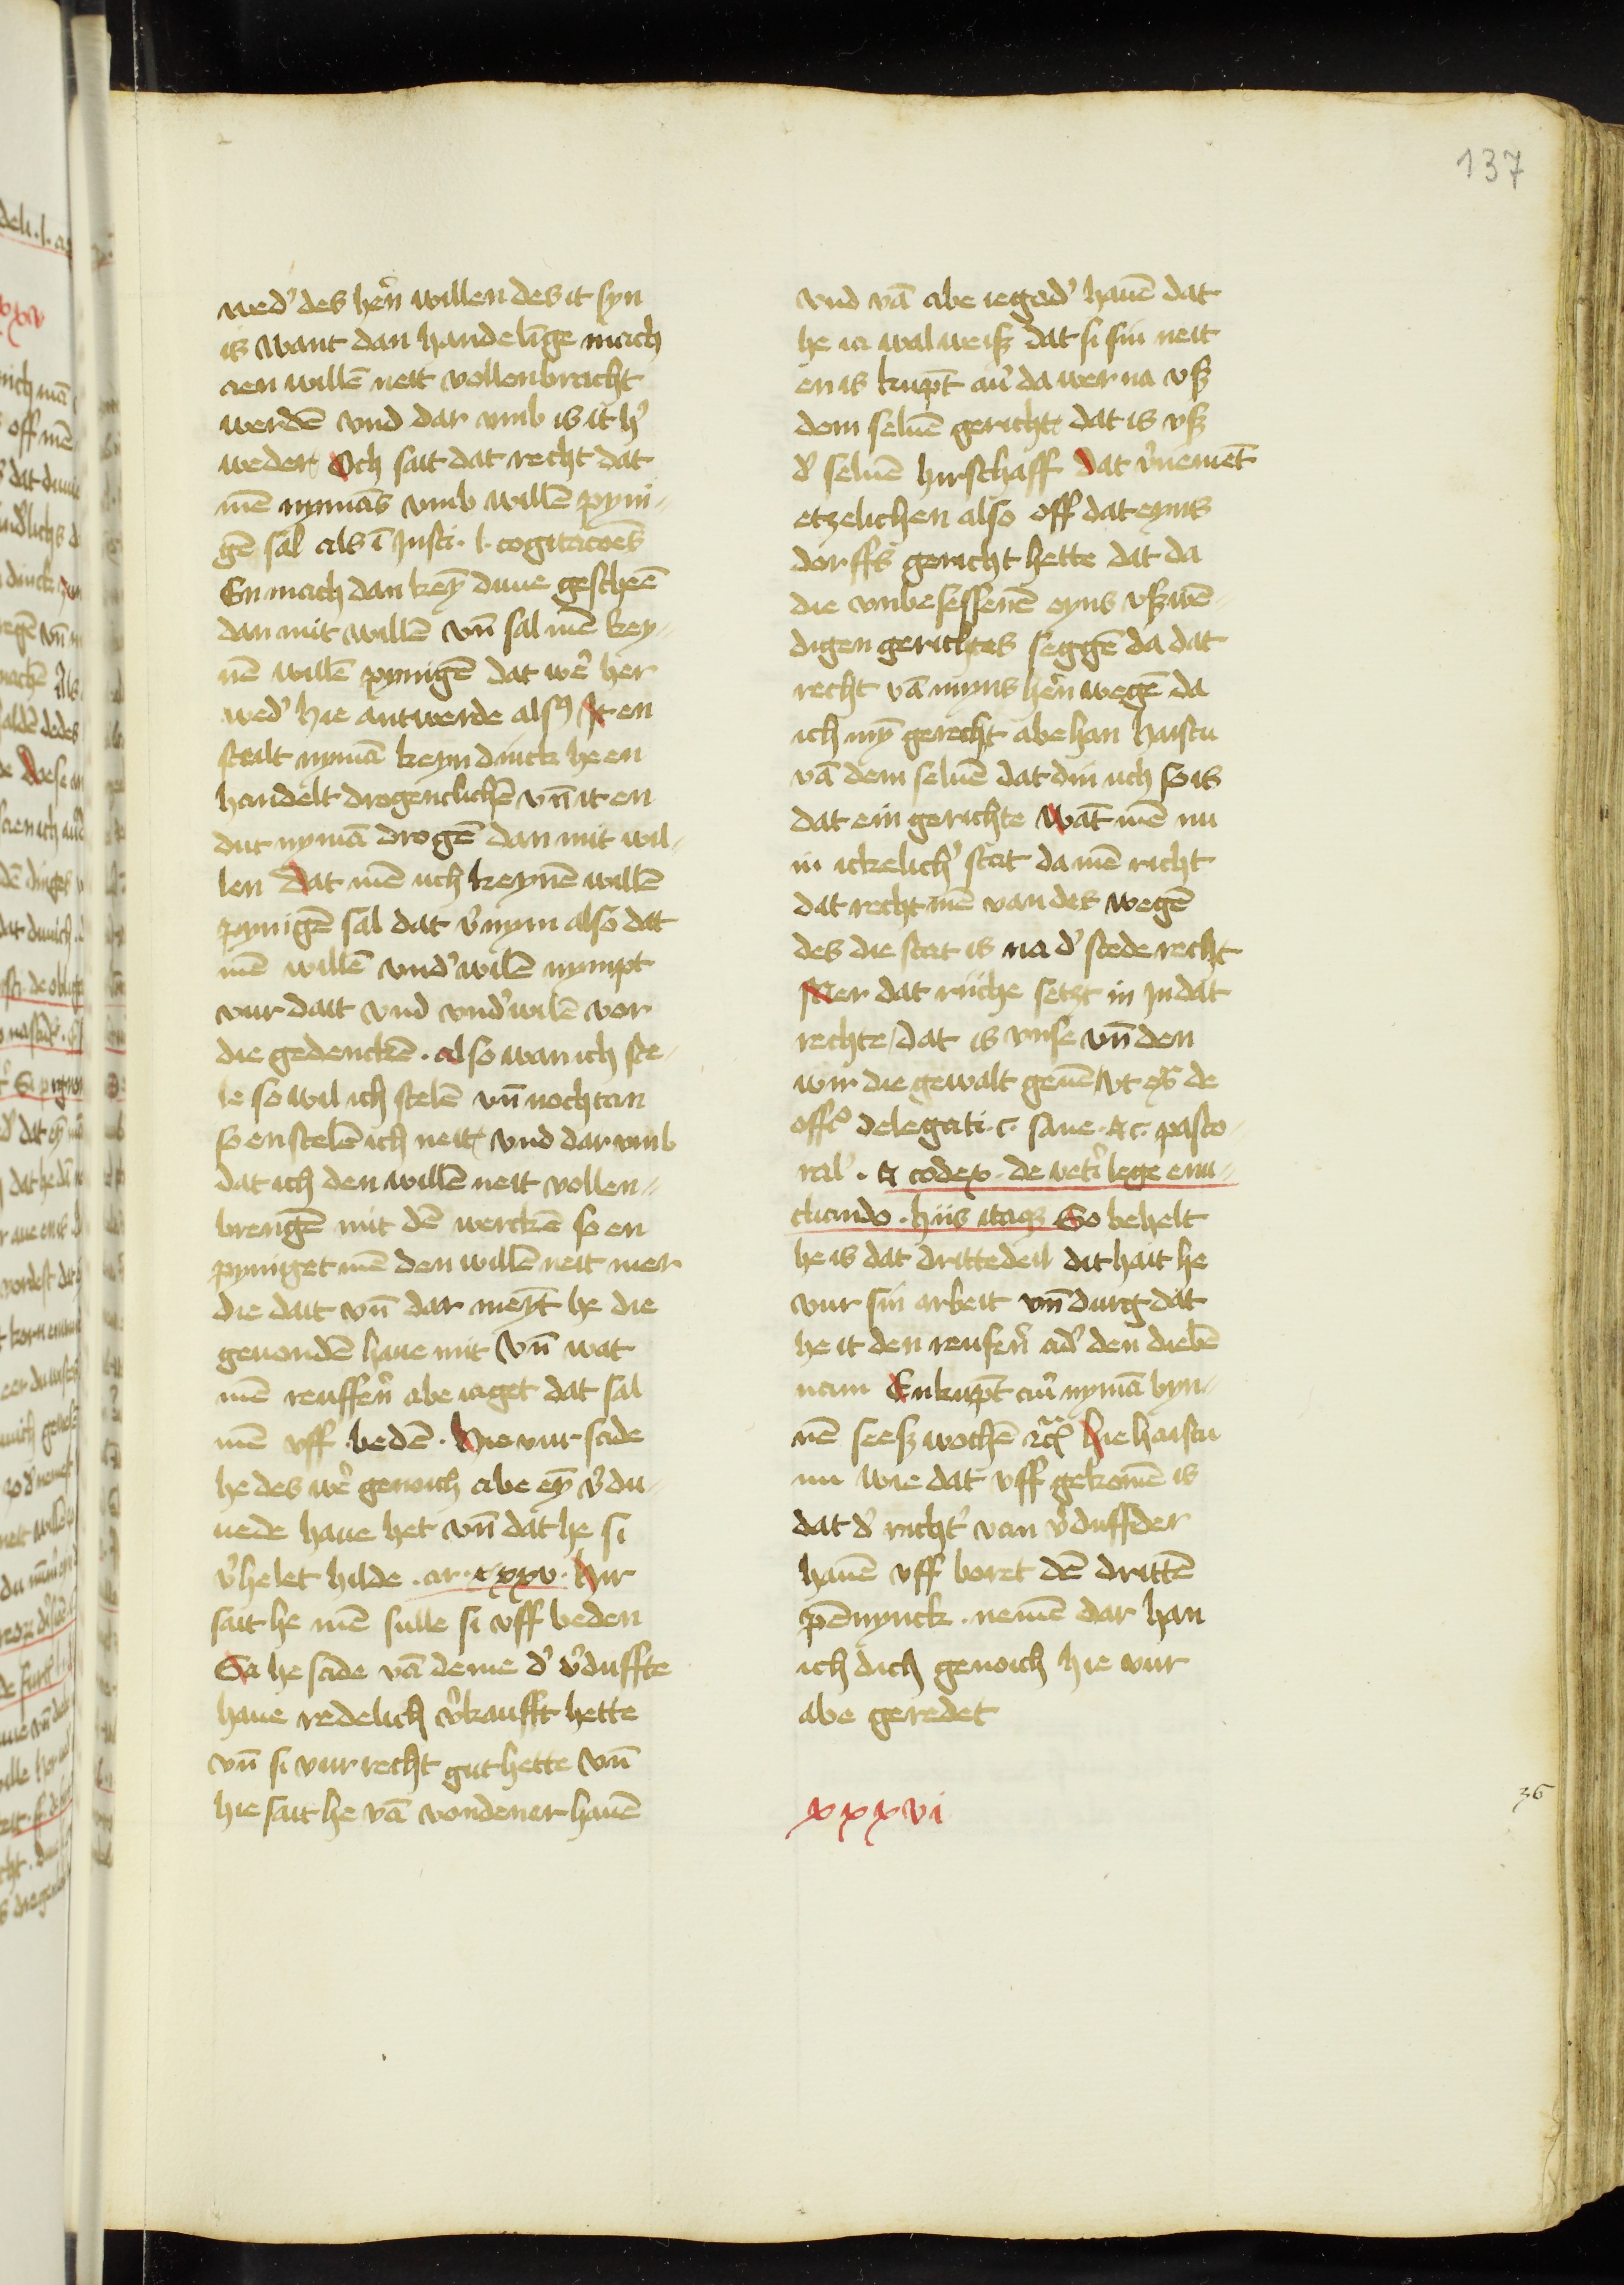 137
wed' des hērn willen des it syn
is want dan handelīge mach
aen willē neit vollenbracht
werdē vnd dar vmb is it h'
weder Och sait dat recht dat
mē nymās vmb willē pyni-
gē sal als ī Justi. l. cogitacoēs
En mach dan keȳ duue gescheē
dan mit willē vn̄ sal mē key-
nē willē pynigē dat we' her
wed' hie antwerde alsꝰ It en
stalt nymā keyn dinck he en
handelt drogenclichē vn̄ it en
dut nymā drogē dan mit wil-
len Dat mē uch keynē willē
pynigē sal dat v'nym also dat
mē willē vnd'wilē nympt
vur dait vnd vnd'wilē vor
die gedenckē. also wan ich ste-
le so wil ich stelē vn̄ nochtan
so en stelē ich neit vnd dar vmb
dat ich den willē neit vollen-
brengē mit dē werckē so en
pyniget mē den willē neit mer
die dait vn̄ dar meȳt he die
geuondē haue mit vn̄ wat
mē reuffern abe iaget dat sal
mē vff bedē. Hie vur sade
he des we' genoich abe eȳ v'du-
uede haue het vn̄ dat he si
v'helet hilde. ar. xxxv. Hir
sait he mē sulle si vff beden
Da he sade vā deme d' v'duffte
haue redelich v'kaufft hette
vn̄ si vur recht gut hette vn̄
hie sait he vā vondener hauē
vnd vā abe iegad' hauē dat
he ia wal weiß dat si sin neit
en is kupt au' da wer na vß
dem seluē gericht dat is vß
d' seluē hirschaff Dat v'nemēt
etzelichen also off dat eyns
dorffs gericht hette dat da
die vmbesessenē eyns vßwē-
digen gerichtes seggē da dat
recht vā myns hērn wegē da
ich mȳ gerecht abe han haistu
vā dem seluē dat din uch so is
dat ein gerichte Wāt mē nu
in ickelich' stat da mē richt
dat recht mē van des wegē
des die stat is na d' stede recht
Mer dat riiche setzt in Jn dat
rechte dat is vnse vn̄ den
wir die gewalt geuē vt ex̄ de
offō delegati. c. sane. & c. pasto-
ral'. & codex. de vet'i lege enu-
cliando. hiis itaqꝫ So behelt
he is dat dritte deil dit hait he
vur sin arbeit vn̄ durg dat
he it den reufern ad' den diebē
nam Enkupt au' nymā byn-
nē seesz wochē ꝛc̄ Hie haistu
nu wie dat vff gekomē is
dat d' richt' van v'duffder
hauē vff boret dē drittē
pēnynck. nemē dar han
ich dich genoich hie vur
abe geredet
xxxvi
36